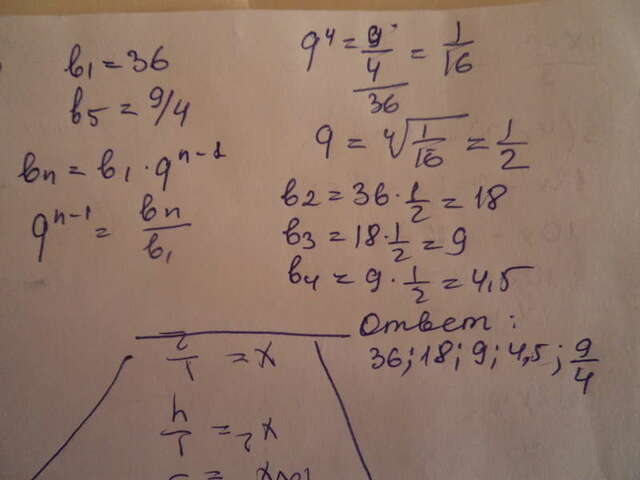 b₁ = 36
b5 = 9/4
bn = b₁ · q^(n-1)
q^(n-1) = bn/b₁
q⁴ = (9/4)/36 = 1/16
q = ⁴√(1/16) = 1/2
b2 = 36 · 1/2 = 18
b3 = 18 · 1/2 = 9
b4 = 9 · 1/2 = 4,5
Ответ:
36; 18; 9; 4,5; 9/4